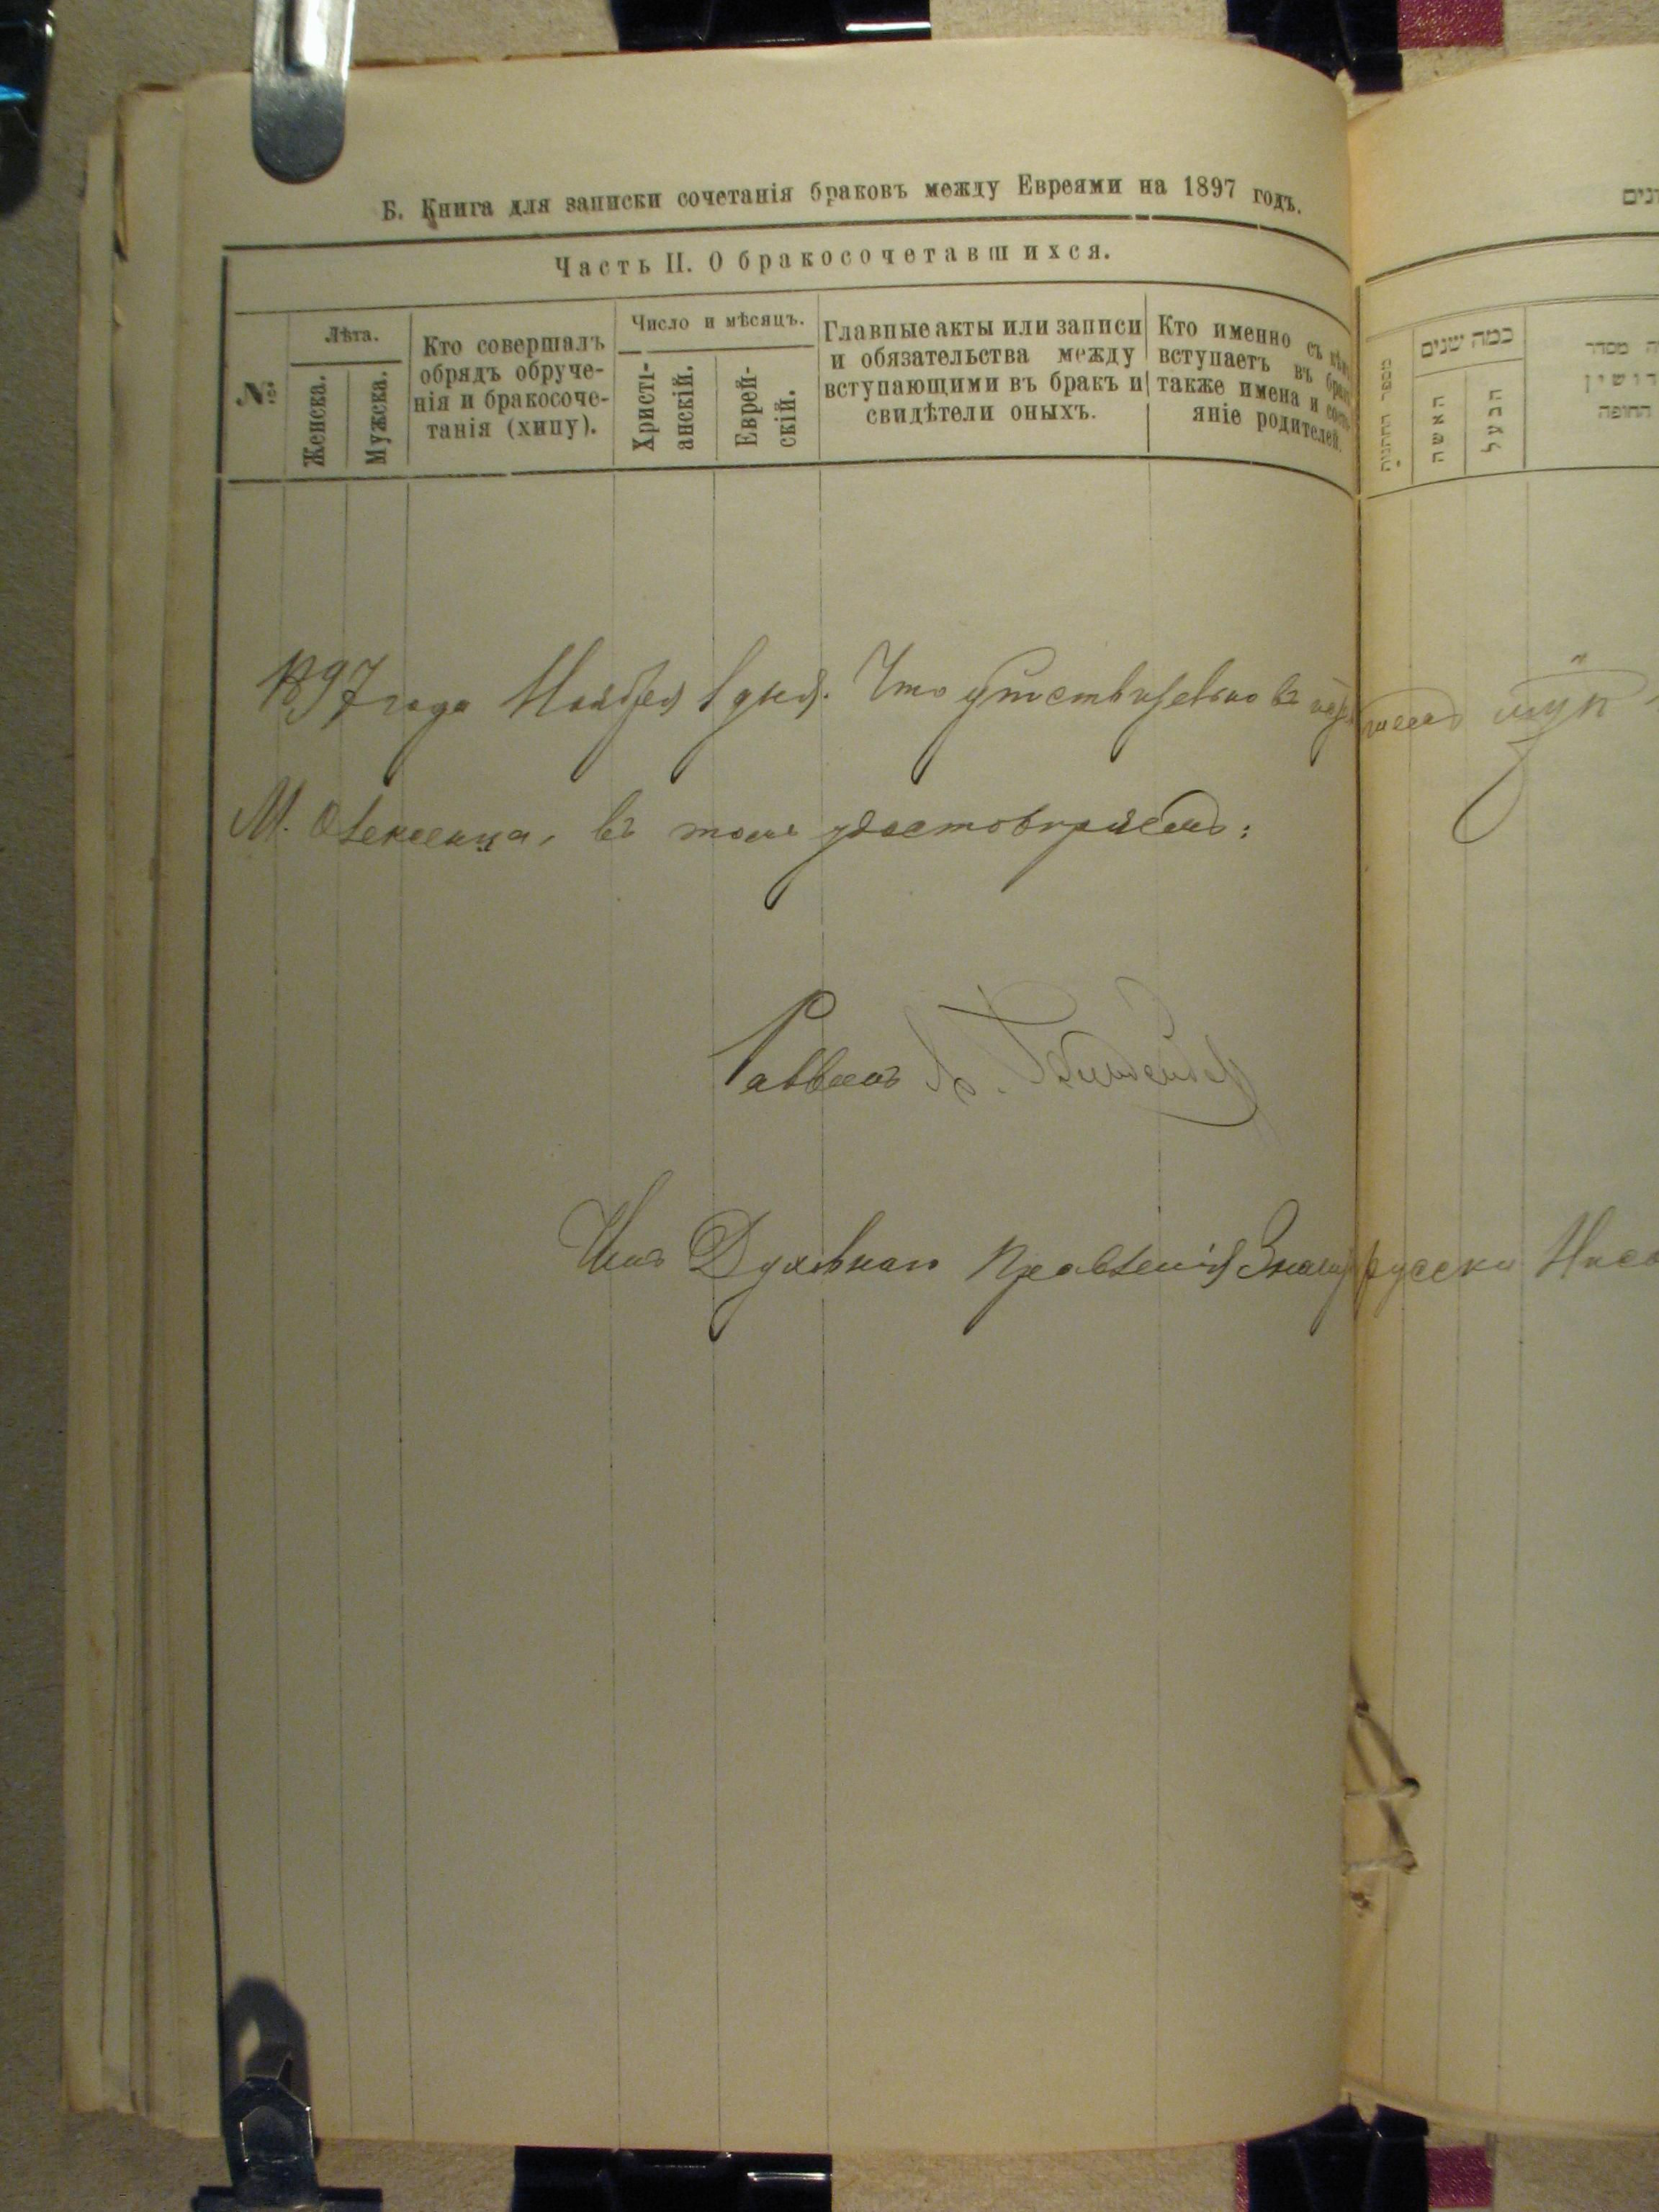 Б. Книга для записки сочетанія браковъ между Евреями на 1897 годъ.
Часть II. О бракосочетавшихся.
№
Лѣта.
Женска.
Мужска.
Кто совершалъ
обрядъ обруче-
нія и бракосоче-
танія (хипу).
Число и мѣсяцъ.
Христі-
анскій.
Еврей-
скій.
Главные акты или записи
и обязательства между
вступающими въ бракъ и
свидѣтели оныхъ.
Кто именно съ кѣмъ
вступаетъ въ бракъ
также имена и состо-
яніе родителей.
כמה שנים
האשה
הבעל
1897 года Ноября 1 дня. Что дѣйствительно въ
М. Олексенца, въ томъ удостовѣряемъ:
Раввинъ
Членъ Духовнаго Правленія Знающій русски